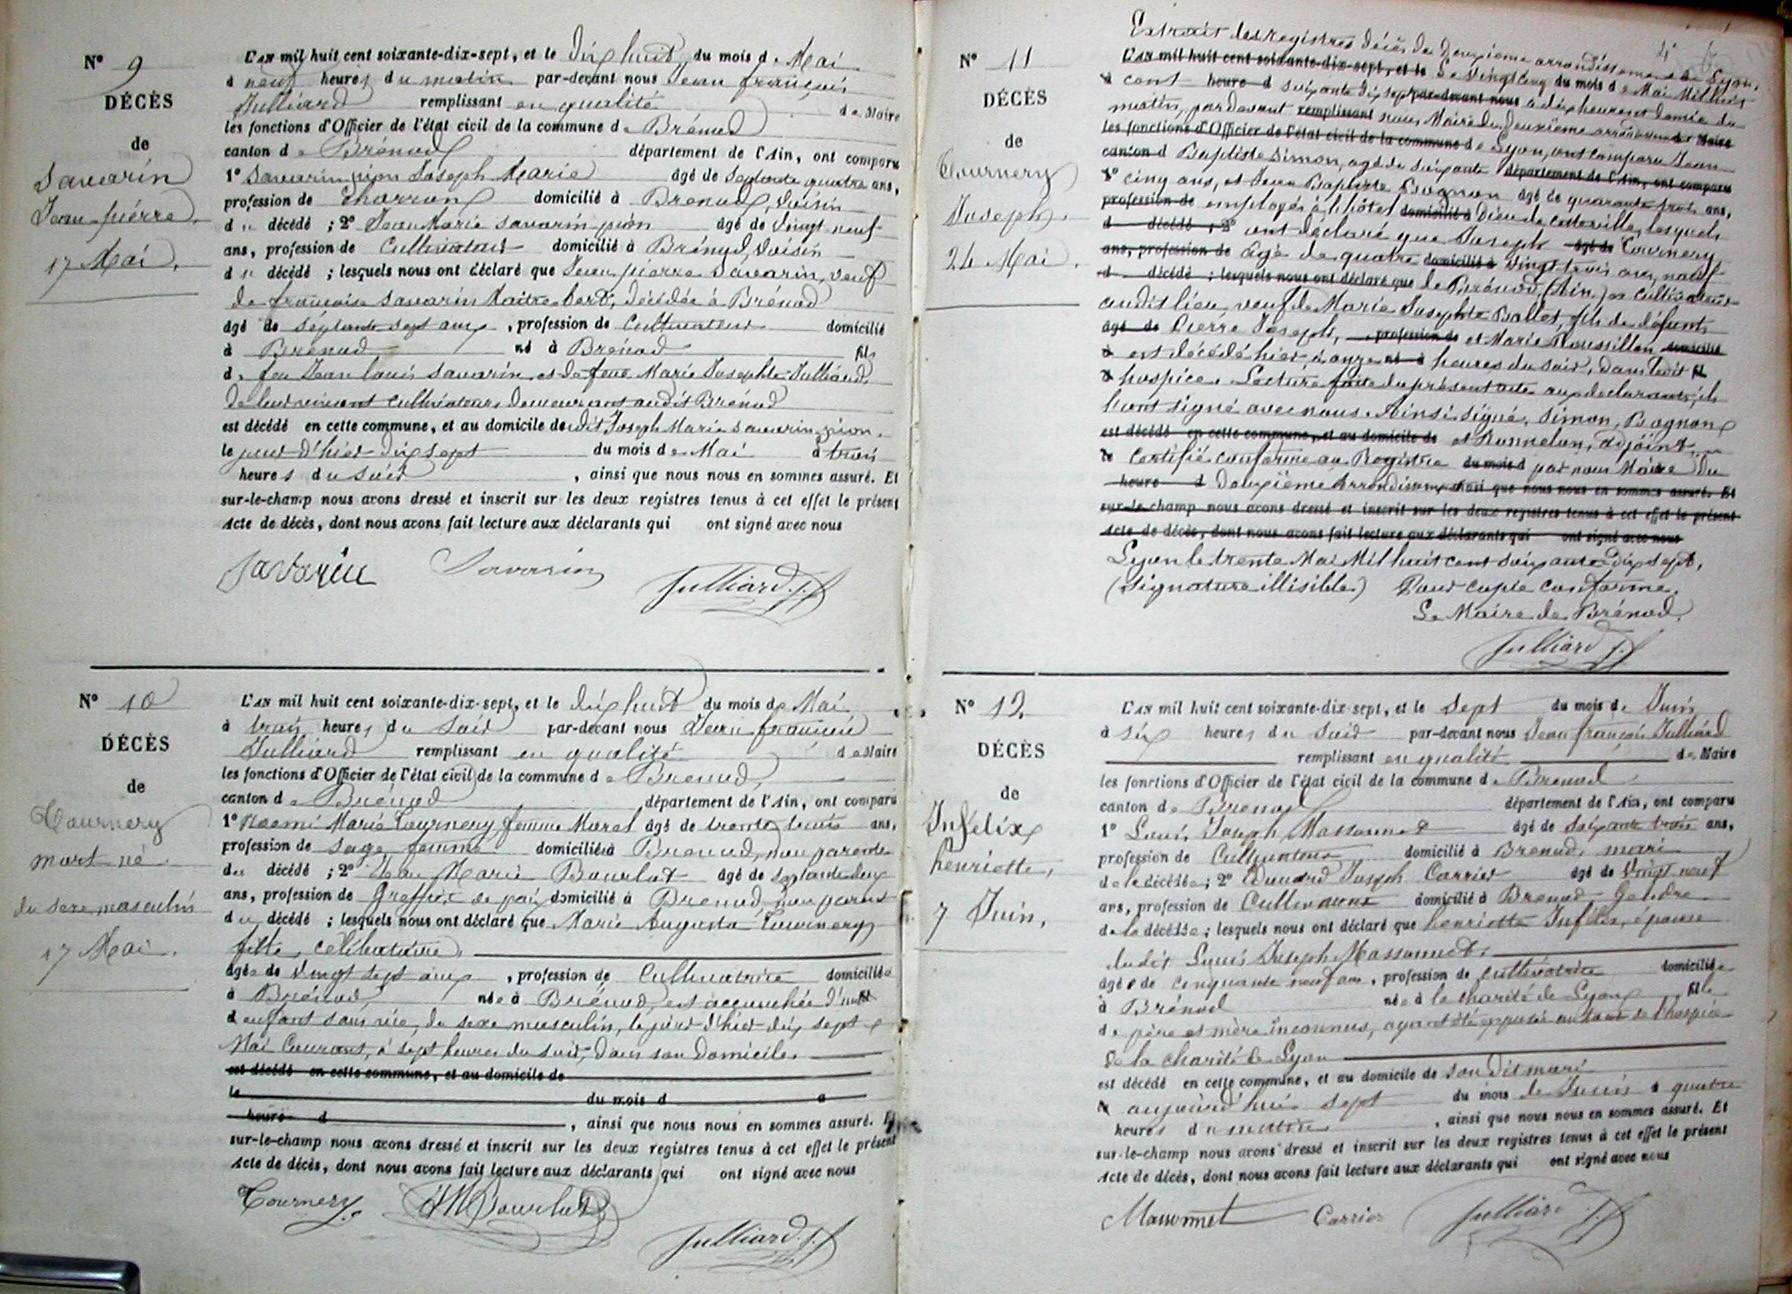 N° 9
DÉCÈS
de
Savarin
Jean-pierre.
17 Mai.
L'AN mil huit cent soixante-dix-sept, et le dix huit du mois de Mai
à neuf heures du matin par-devant nous Jean françois
Julliard remplissant en qualité de Maire
les fonctions d'Officier de l'état civil de la commune de Brénod
canton de Brénod département de l'Ain, ont comparu
1° Savarin pion Joseph Marie âgé de Septante quatre ans,
profession de Charron domicilié à Brenod, Voisin
du décédé ; 2° Jean Marie Savarin pion âgé de Vingt neuf
ans, profession de Cultivateur domicilié à Brénod, Voisin
du décédé ; lesquels nous ont déclaré que Jean pierre Savarin, veuf
de françoise Savarin Maitre bert, décédée à Brénod
âgé de septante sept ans, profession de Cultivateur domicilié
à Brénod né à Brénod fils
de feu Jean louis Savarin et de feue Marie Josephte Julliard,
de leur vivant cultivateurs, demeurant audit Brénod
est décédé en cette commune, et au domicile dudit Joseph Marie Savarin pion.
le jour d'hier dix sept du mois de Mai à trois
heures du soir, ainsi que nous nous en sommes assuré. Et
sur-le-champ nous avons dressé et inscrit sur les deux registres tenus à cet effet le présent
Acte de décès, dont nous avons fait lecture aux déclarants qui ont signé avec nous
Savarin Savarin Julliard J. f
N° 10
DÉCÈS
de
Tournery
mort né
du sexe masculin
17 Mai.
L'AN mil huit cent soixante-dix-sept, et le dix huit du mois de Mai
à trois heures du Soir par-devant nous Jean françois
Julliard remplissant en qualité de Maire
les fonctions d'Officier de l'état civil de la commune de Brenod,
canton de Brénod département de l'Ain, ont comparu
1° Noemi Marie Tournery femme Muret âgé de trente trois ans,
profession de Sage femme domiciliée à Brenod, non parente
du décédé ; 2° Jean Marie Bourlot âgé de septante deux
ans, profession de Greffier de paix domicilié à Brenod, non parent
du décédé ; lesquels nous ont déclaré que Marie Augusta Tournery
fille, célibataire,
âgée de vingt sept ans, profession de Cultivatrice domiciliée
à Brénod née à Brénod, est accouchée d'un
enfant sans vie, de sexe masculin, le jour d'hier dix sept
Mai Courant, à sept heures du soir, dans son domicile.
est décédé en cette commune, et au domicile de
le du mois d à
heure d , ainsi que nous nous en sommes assuré. Et
sur-le-champ nous avons dressé et inscrit sur les deux registres tenus à cet effet le présent
Acte de décès, dont nous avons fait lecture aux déclarants qui ont signé avec nous
Tournery. JM Bourlot Julliard J. f
N° 11
DÉCÈS
de
Tournery
Joseph.
24 Mai.
Extrait des registres décès du Deuxième arrondissement de Lyon.
L'AN mil huit cent soixante-dix-sept, et le Le Vingt Cinq du mois de Mai Mil huit
à cent heure d soixante dix sept par-devant nous à dix heures et demie du
matin, par devant remplissant nous, Maire du deuxième arrondissement de Maire
les fonctions d'Officier de l'état civil de la commune de Lyon, ont comparu Jean
canton d Baptiste Simon, agé de soixante département de l'Ain, ont comparu
1° cinq ans, et Jean Baptiste Bognon âgé de quarante trois ans,
profession de employés à l'hôtel domicilié à Dieu de cette ville, lesquels
d décédé ; 2° ont déclaré que Joseph âgé de Tournery,
ans, profession de agé de quatre domicilié à vingt trois ans, natif
d décédé ; lesquels nous ont déclaré que de Brénod (Ain) Cultivateur
audit lieu, veuf de Marie Josephte Ballet, fils de défunts
âgé de Pierre Joseph, profession de et Marie Moussillon domicilié
à est décédé hier à onze né à heures du soir, dans ledit fil
d hospice. Lecture faite du présent acte aux declarants, ils
l'ont signé avec nous. Ainsi signé, Simon, Bognon
est décédé en cette commune, et au domicile de et Monnelon, adjoint.
le Certifié conforme au Registre du mois d par nous Maire du
heure d Deuxième Arrondissement ainsi que nous nous en sommes assuré. Et
sur-le-champ nous avons dressé et inscrit sur les deux registres tenus à cet effet le présent
Acte de décès, dont nous avons fait lecture aux déclarants qui ont signé avec nous
Lyon le trente Mai Mil huit cent soixante Dix sept,
(Signature illisible) Pour copie conforme.
Le Maire de Brénod,
Julliard J. f
N° 12.
DÉCÈS
de
Infélix
henriette,
7 Juin,
L'AN mil huit cent soixante-dix-sept, et le Sept du mois de Juin
à six heures du Soir par-devant nous Jean françois Julliard
remplissant en qualité de Maire
les fonctions d'Officier de l'état civil de la commune de Brenod
canton de Brenod département de l'Ain, ont comparu
1° Louis Joseph Massonnet âgé de soixante trois ans,
profession de Cultivateur domicilié à Brenod, mari
de la décédée ; 2° Edouard Joseph Carrier âgé de Vingt neuf
ans, profession de Cultivateur domicilié à Brenod Gendre
de la décédée ; lesquels nous ont déclaré que henriette Infélix, épouse
dudit Louis Joseph Massonnet.
âgée de cinquante neuf ans, profession de cultivatrice domiciliée
à Brénod née à la charité de Lyon fille
de père et mère inconnus, ayant été exposée au tour de l'hospice
de la charité de Lyon
est décédé en cette commune, et au domicile de son dit mari
le aujourd'hui sept du mois de Juin à quatre
heures du matin, ainsi que nous nous en sommes assuré. Et
sur-le-champ nous avons dressé et inscrit sur les deux registres tenus à cet effet le présent
Acte de décès, dont nous avons fait lecture aux déclarants qui ont signé avec nous
Massonnet Carrier Julliard J. f